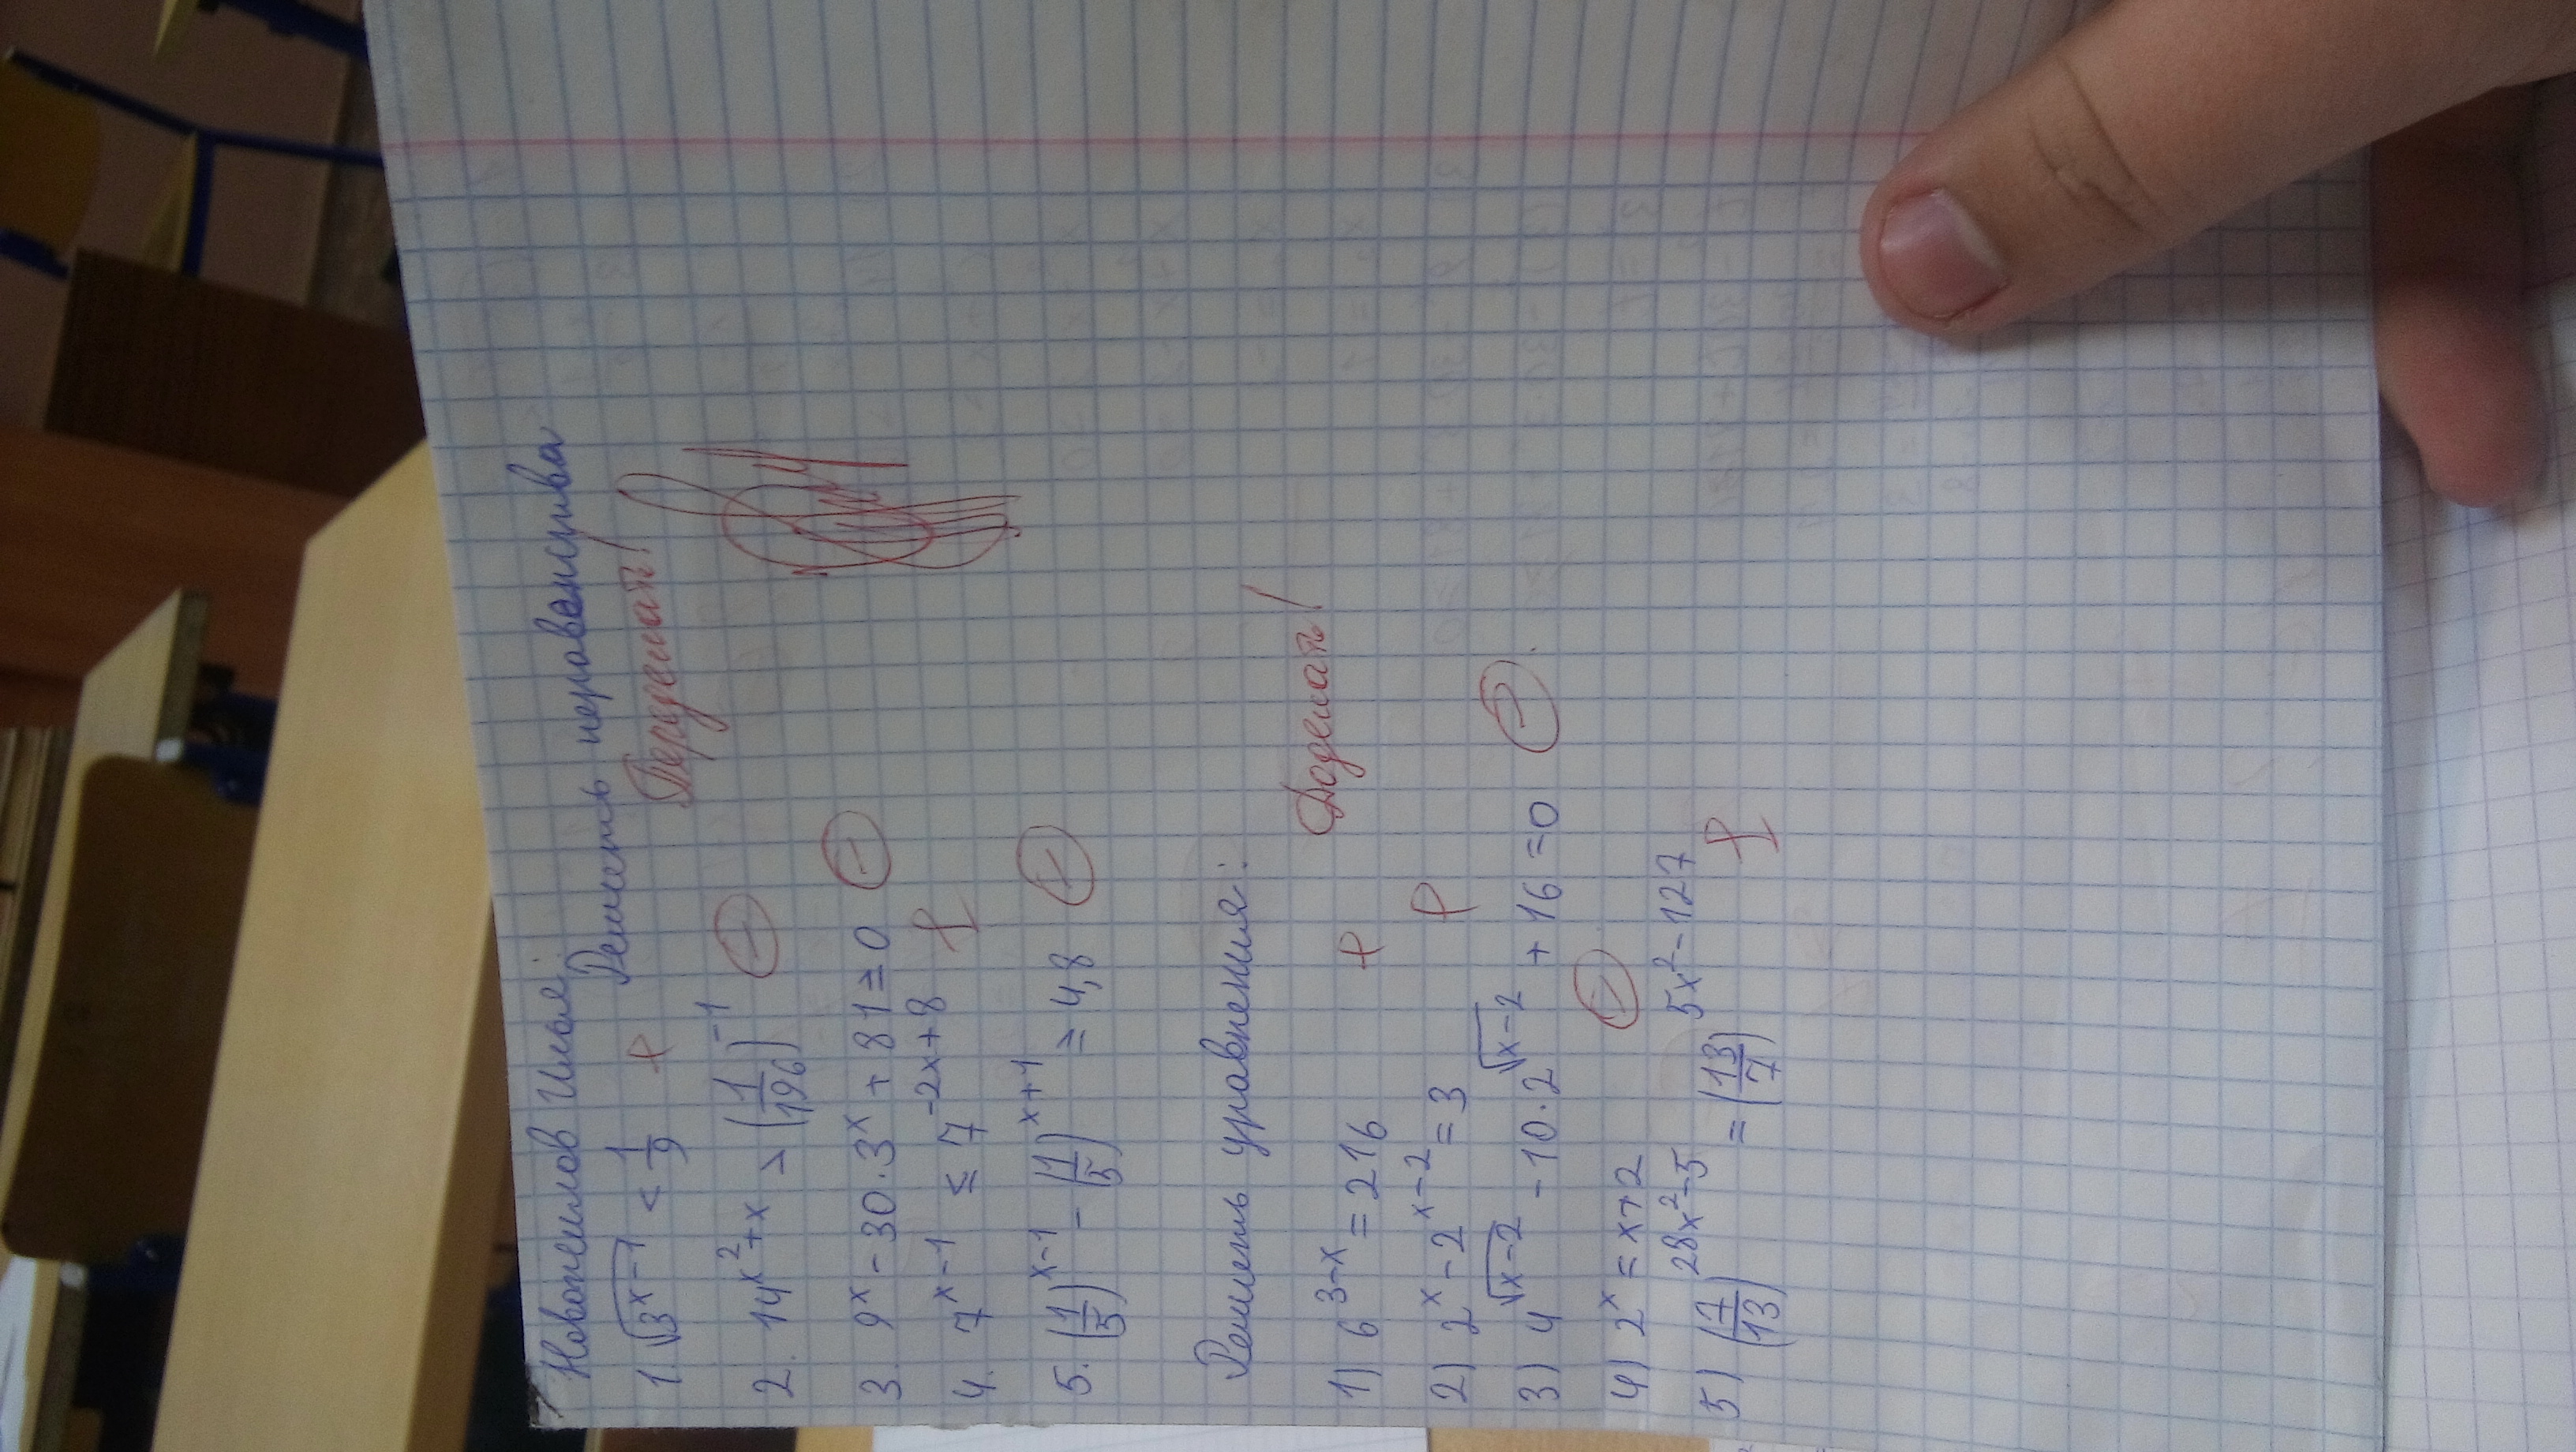 Новожилов Илья.
Решить неравенства
1. √(3^(x-1)) < 1/9 +
Переделать!
2. 14^(x^2+x) > (1/196)^(-1) (-)
3. 9^x - 30·3^x + 81 ≥ 0 (-)
4. 7^(x-1) ≤ 7^(-2x+8)
5. (1/5)^(x-1) - (1/5)^(x+1) ≥ 4,8
Решить уравнения:
Доделать!
1) 6^(3-x) = 216 +
2) 2^x - 2^(x-2) = 3
3) 4^√(x-2) - 10·2^√(x-2) + 16 = 0
4) 2^x = x+2
5) (7/13)^(28x^2-5) = (13/7)^(5x^2-127)